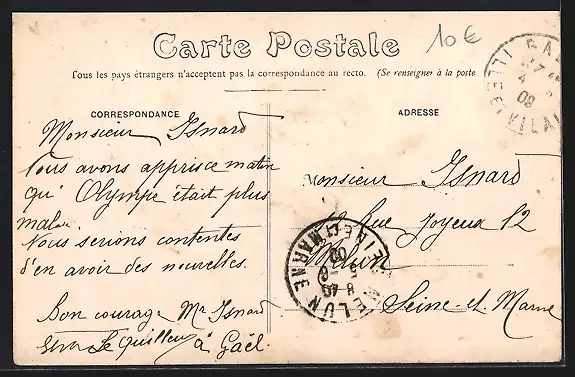 Carte Postale
10€
Tous les pays étrangers n'acceptent pas la correspondance au recto. (Se renseigner à la poste
CORRESPONDANCE
Monsieur Isnard
Nous avons appris ce matin
qu' Olympe était plus
mal
Nous serions contentes
d'en avoir des nouvelles.
Bon courage Mr Isnard
Le Quilleuc à Gaël.
ADRESSE
Monsieur Isnard
12 Rue Joyeux 12
Melun
Seine-et-Marne
MELUN
SEINE-ET-MARNE
8 45
5
09
ILLE-ET-VILAINE
4
09